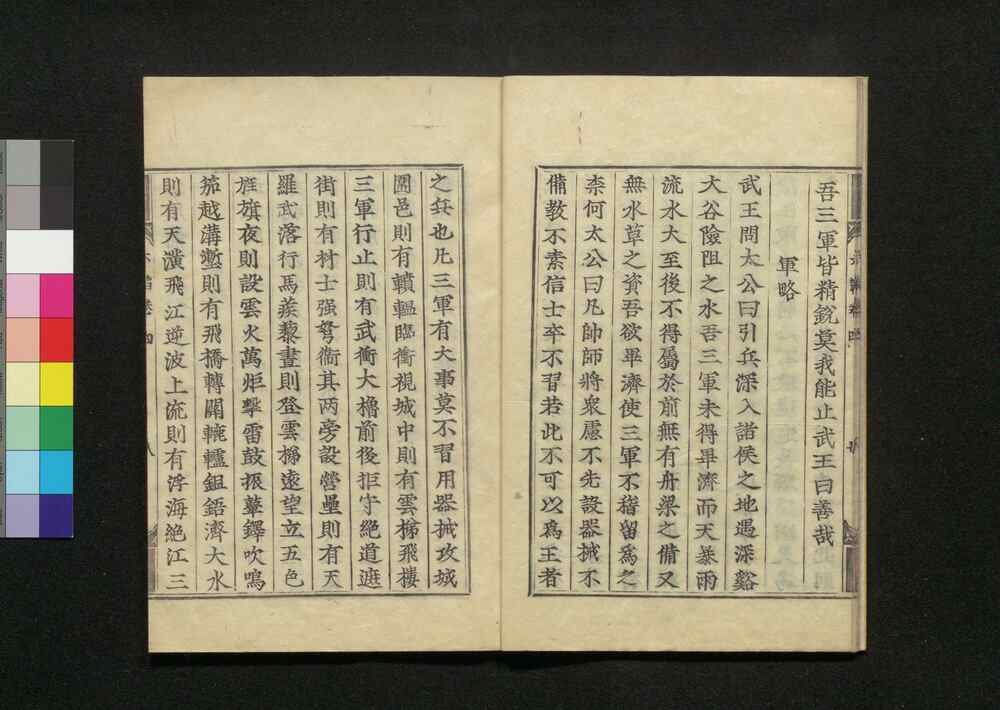 吾三軍皆精銳莫我能止武王曰善哉
軍略
武王問太公曰引兵深入諸侯之地遇深谿
大谷險阻之水吾三軍未得畢濟而天暴雨
流水大至後不得屬於前無有舟梁之備又
無水草之資吾欲畢濟使三軍不稽留爲之
柰何太公曰凡帥師將衆慮不先設器械不
備教不素信士卒不習若此不可以爲王者
之兵也凡三軍有大事莫不習用器械攻城
圍邑則有轒轀臨衝視城中則有雲梯飛樓
三軍行止則有武衝大櫓前後拒守絶道遮
街則有材士强弩衝其两旁設營壘則有天
羅武落行馬蒺藜晝則登雲梯遠望立五色
旌旗夜則設雲火萬炬擊雷鼓振鼙鐸吹鳴
笳越溝壍則有飛橋轉關轆轤鉏鋙濟大水
則有天潢飛江逆波上流則有浮海絶江三